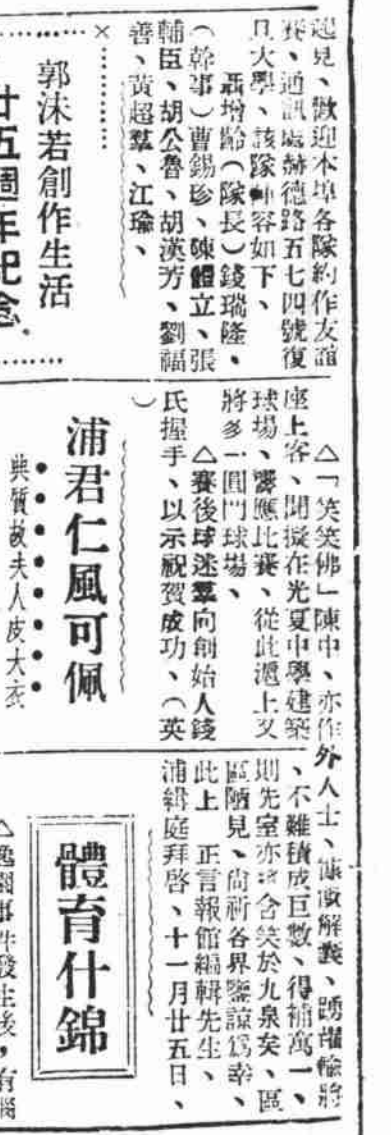 起見、歡迎本埠各隊約作友誼
賽、通訊處赫德路五七四號復
旦大學、該隊陣容如下、
聶增齡(隊長)錢瑞隆、
(幹事)曹錫珍、陳體立、張
輔臣、胡公魯、胡漢芳、劉福
善、黃超羣、江瑜、
郭沫若創作生活
廿五週年紀念
△「笑笑佛」陳中、亦作
座上客、聞擬在光夏中學建築
球場、響應比賽、從此滬上又
將多一圓門球場、
△賽後球迷羣向創始人錢
氏握手、以示祝賀成功、(英
)
浦君仁風可佩
典質故夫人皮大衣
外人士、慷慨解義、踴躍輸將
、不難積成巨數、得補萬一、
則先室亦含笑於九泉矣、區
區陋見、尚祈各界鑒諒爲幸、
此上 正言報館編輯先生、
浦緝庭拜啓、十一月廿五日、
體育什錦
△逸園事件發生後,有